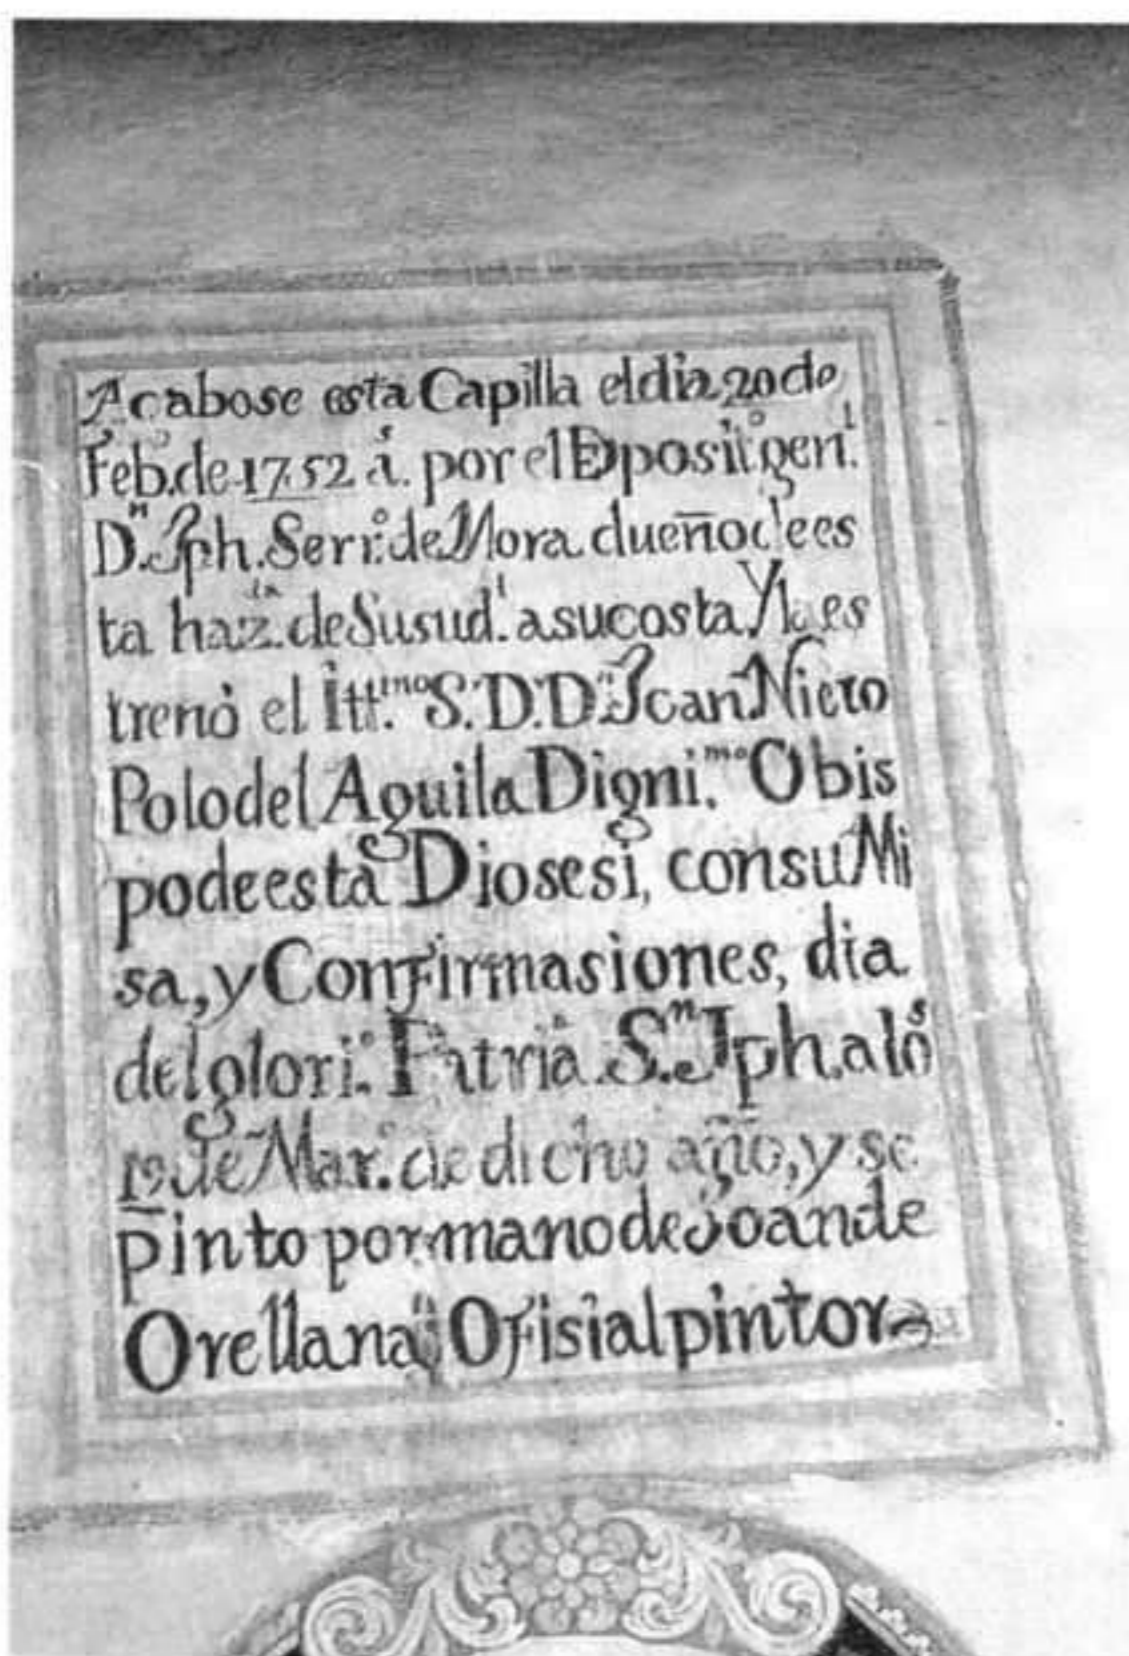 Acabose esta Capilla el dia 20 de
Feb.º de 1752 a.ˢ por el Dposit.º gen.ˡ
D.ⁿ Jph. Serr.º de Mora dueño de es
ta haz.ᵈᵃ de Susud.ˡ a su costa Y la es
trenò el Itt.ᵐᵒ S. D. D.ⁿ Joan Nieto
Polo del Aguila Digni.ᵐᵒ Obis
po de esta Diosesi, con su Mi
sa, y Confirmasiones, dia
del glori.º Patria. S.ⁿ Jph. a loˢ
19 de Mar.º de dicho año, y se
pinto por mano de Joan de
Orellana Ofisial pintor